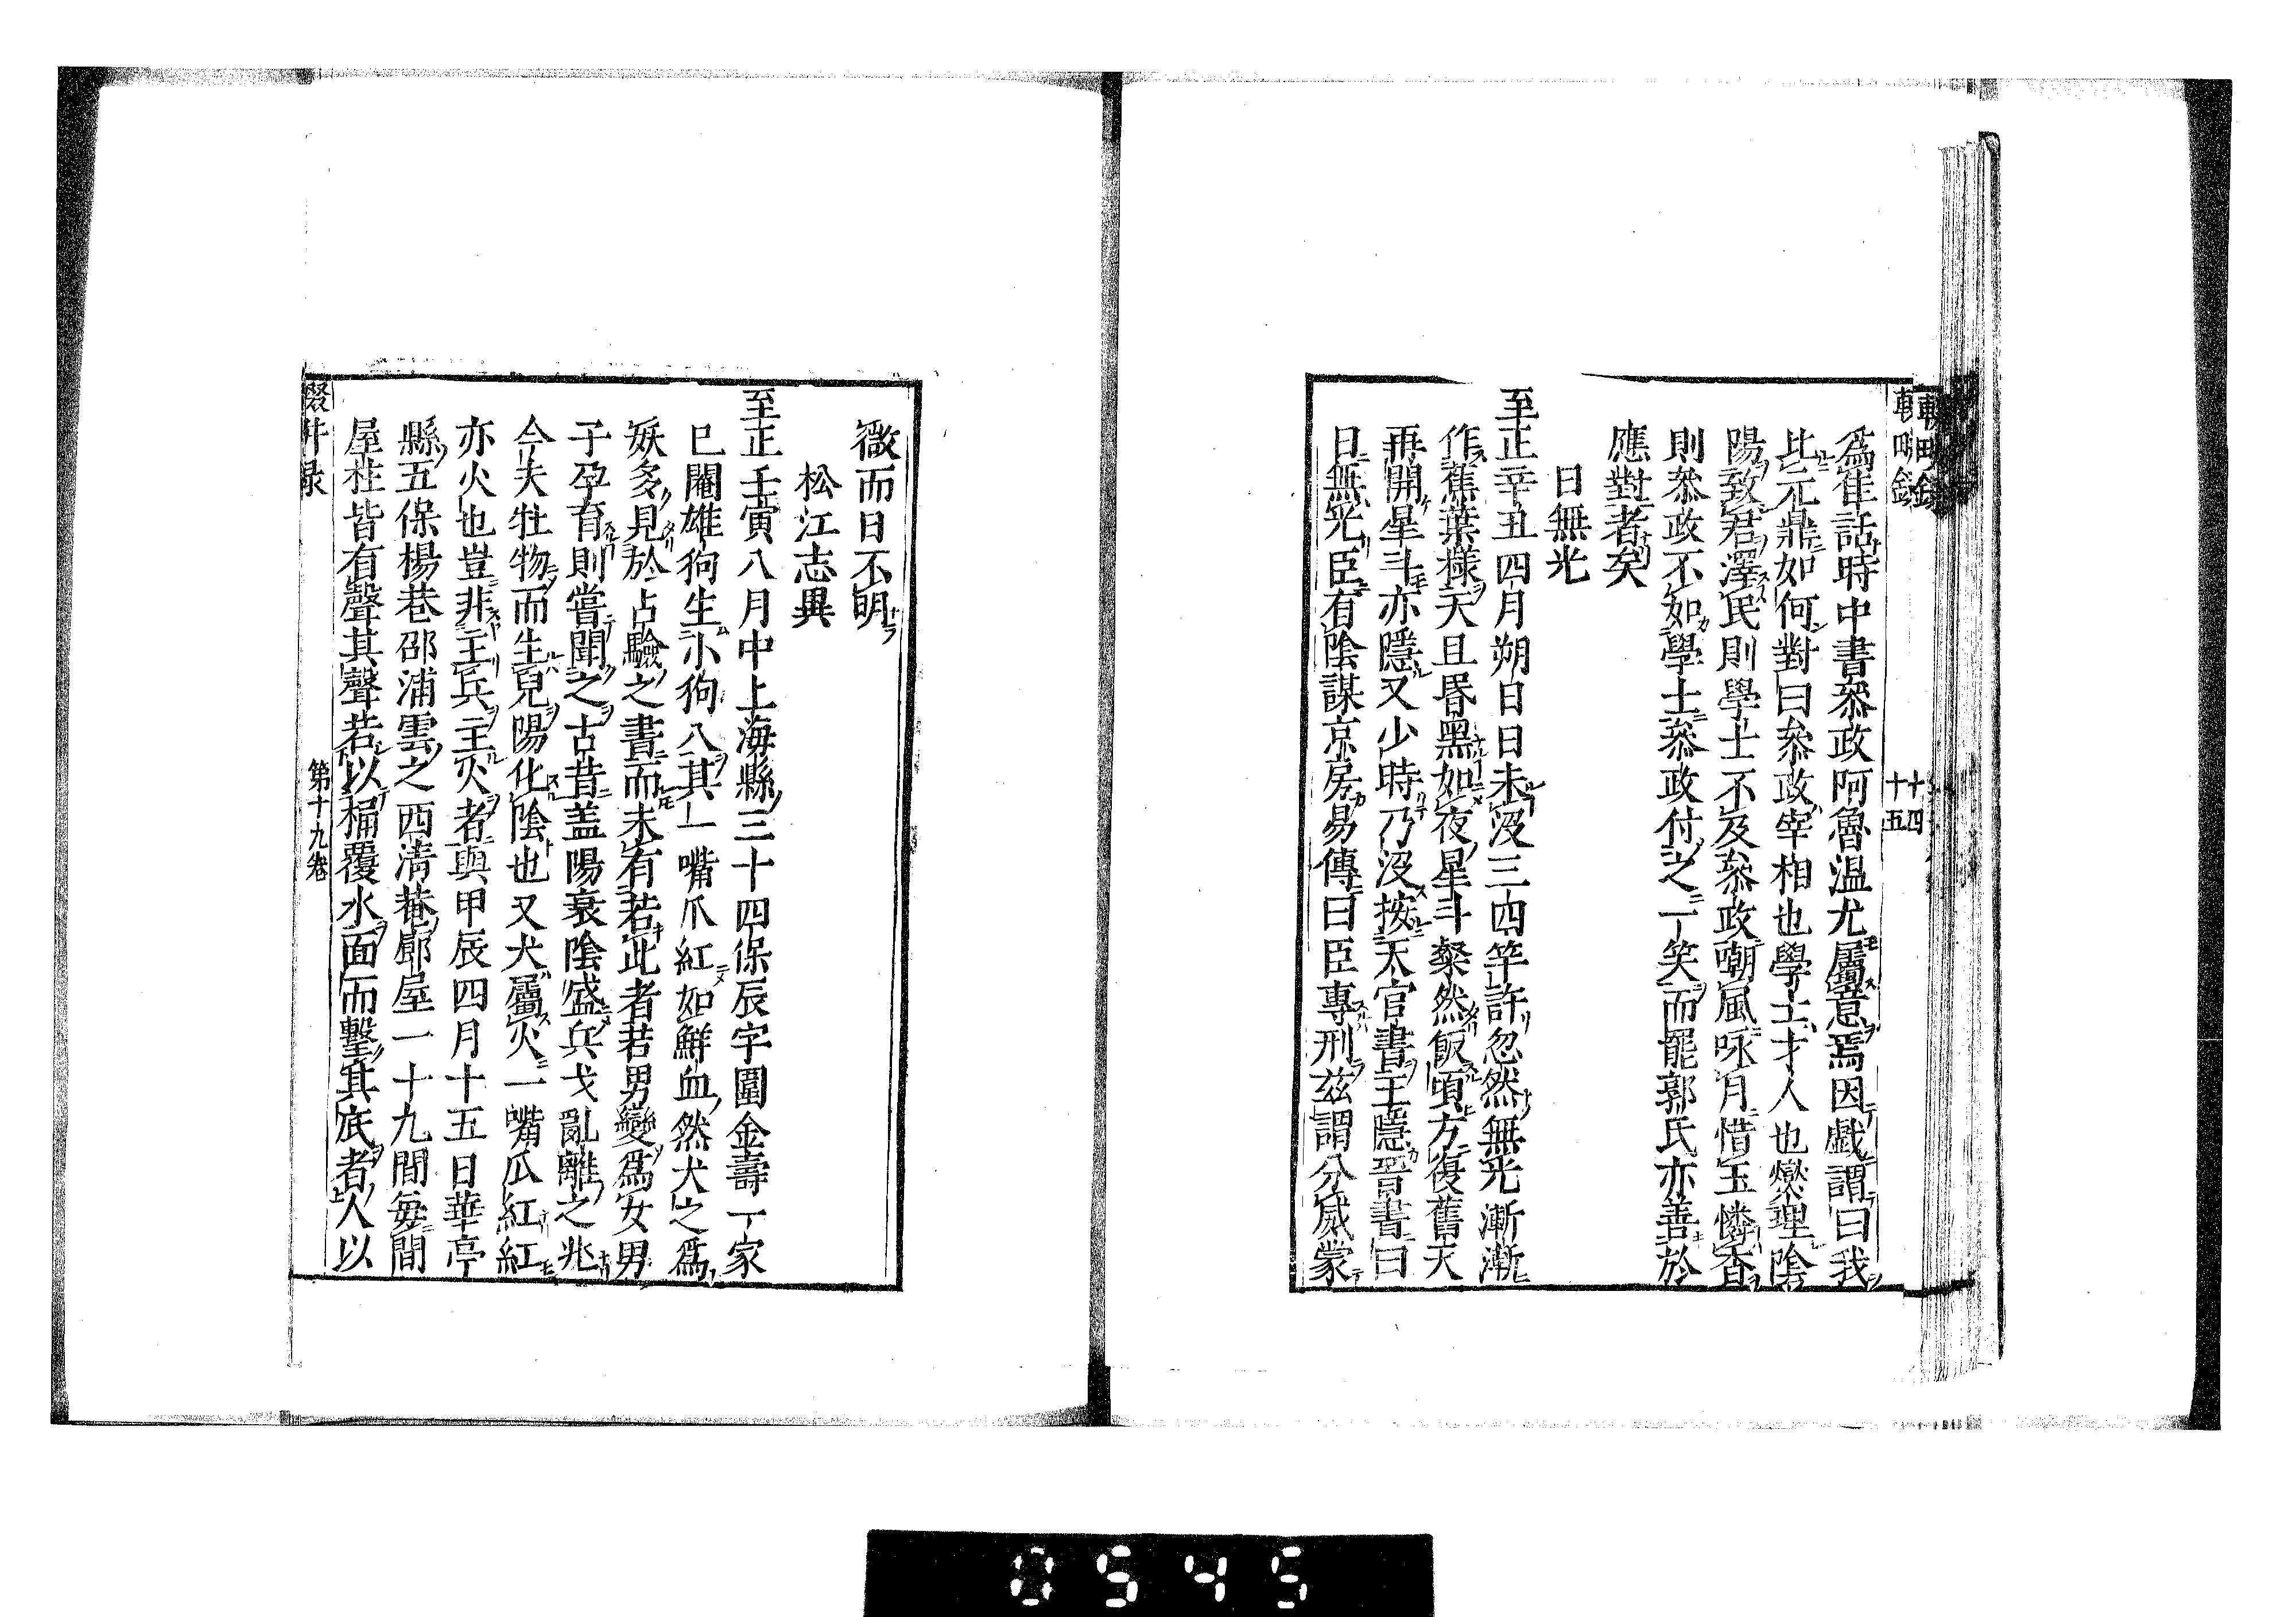 輟畊錄
十四
十五
爲崔話時中書叅政阿魯溫尤屬意焉因戲謂曰我
比元鼎如何對曰叅政宰相也學士才人也燮理陰
陽致君澤民則學士不及叅政嘲風咏月惜玉憐香
則叅政不如學士叅政付之一笑而罷郭氏亦善於
應對者矣
日無光
至正辛丑四月朔日日未沒三四竿許忽然無光漸漸
作蕉葉樣天且昏黑如夜星斗粲然飯頃方復舊天
再開星斗亦隱又少時乃沒按天官書王隱晉書曰
日無光臣有陰謀京房易傳曰臣專刑茲謂分威蒙
微而日不明
松江志異
至正壬寅八月中上海縣三十四保辰字圍金壽一家
已閹雄狗生小狗八其一嘴爪紅如鮮血然犬之爲
妖多見於占驗之書而未有若此者若男變爲女男
子孕育則嘗聞之古昔盖陽衰陰盛兵戈亂離之兆
今夫牡物而生兒陽化陰也又犬屬火一嘴爪紅紅
亦火也豈非主兵主火者與甲辰四月十五日華亭
縣五保楊巷邵浦雲之西清菴廊屋一十九間每間
屋柱皆有聲其聲若以桶覆水面而擊其底者人以
輟畊录
第十九卷
0545